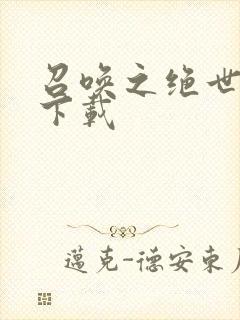 召唤之绝世
下载
邁克-德安東尼